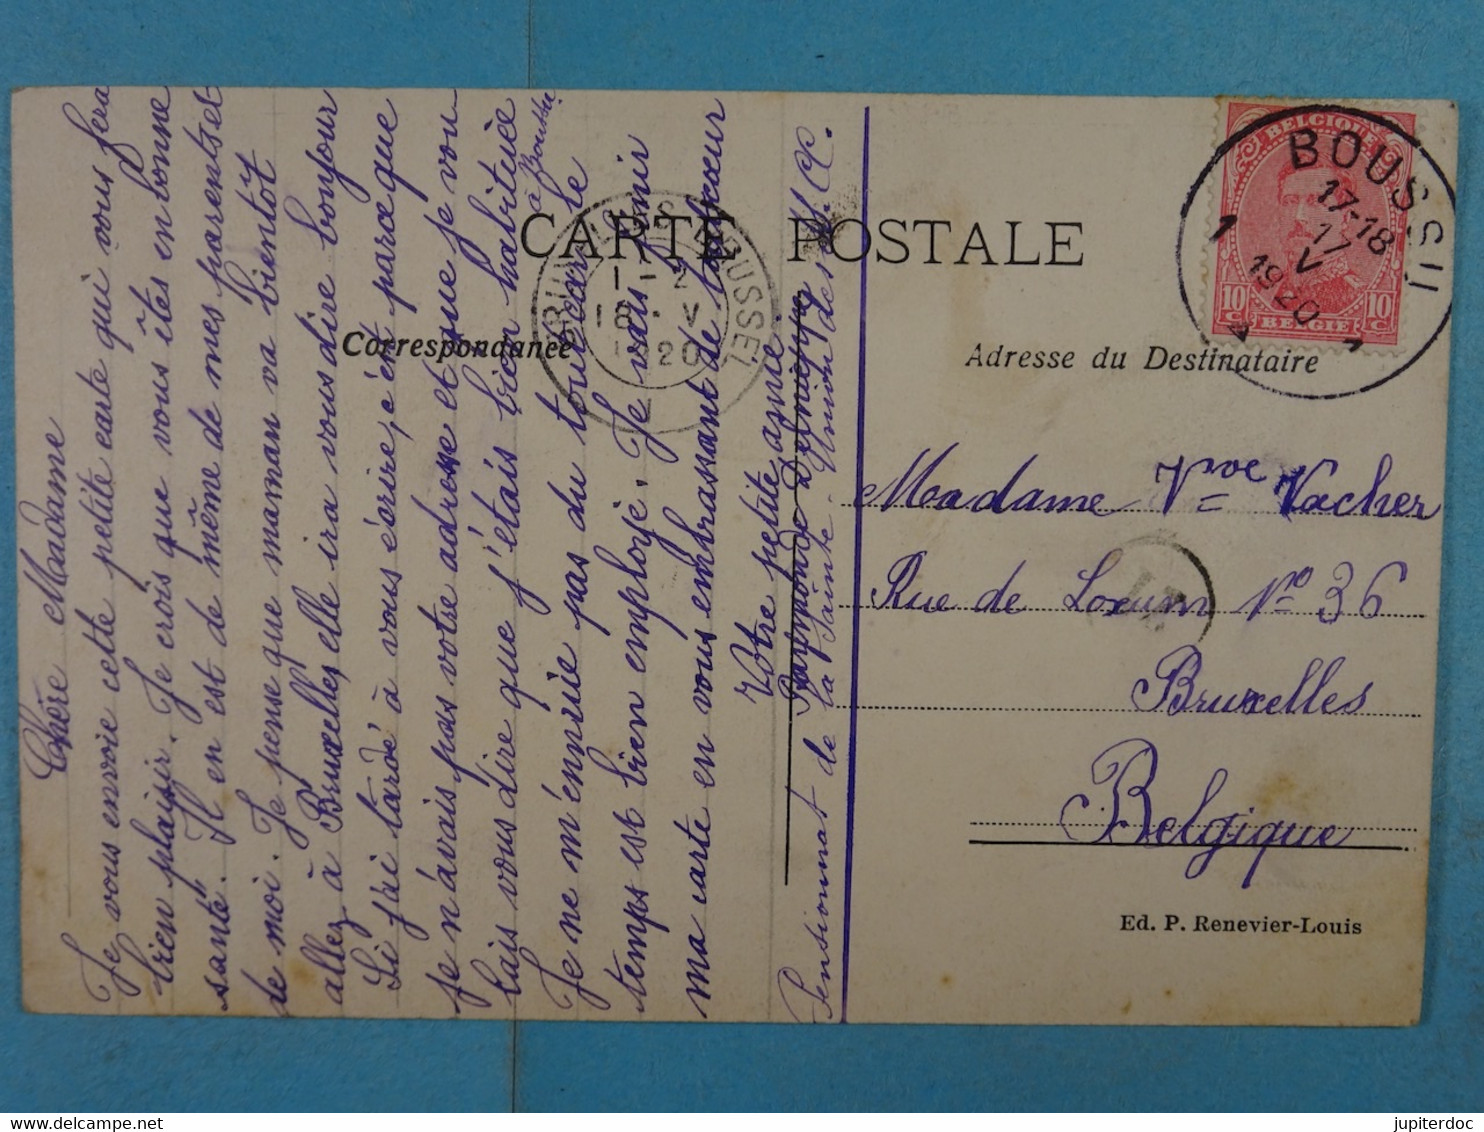 CARTE POSTALE
Correspondance
Adresse du Destinataire
Chère Madame
Je vous envoie cette petite carte qui vous fera
bien plaisir. Je crois que vous êtes en bonne
santé. Il en est de même de mes parents et
de moi. Je pense que maman va bientôt
allez à Bruxelles elle ira vous dire bonjour
Si j'ai tardé à vous écrire, c'ét parce que
je n'avais pas votre adresse et que je vou
lais vous dire que j'étais bien habituée
à Boussu.
Je ne m'ennuie pas du tout car le
temps est bien employé. Je vais finir
ma carte en vous embrassant de tout cœur
Votre petite amie
Raymonde
Pensionnat de la Sainte-Union des S.C.C.
Madame Vve Vacher
Rue de Loxum No 36
Bruxelles
Belgique
Ed. P. Renevier-Louis
BELGIQUE
10 c
10 c
BELGIË
BOUSSU
17-18
17
V
1920
1 1
BRUXELLES BRUSSEL
1-2
18 V
1920
jupiterdoc